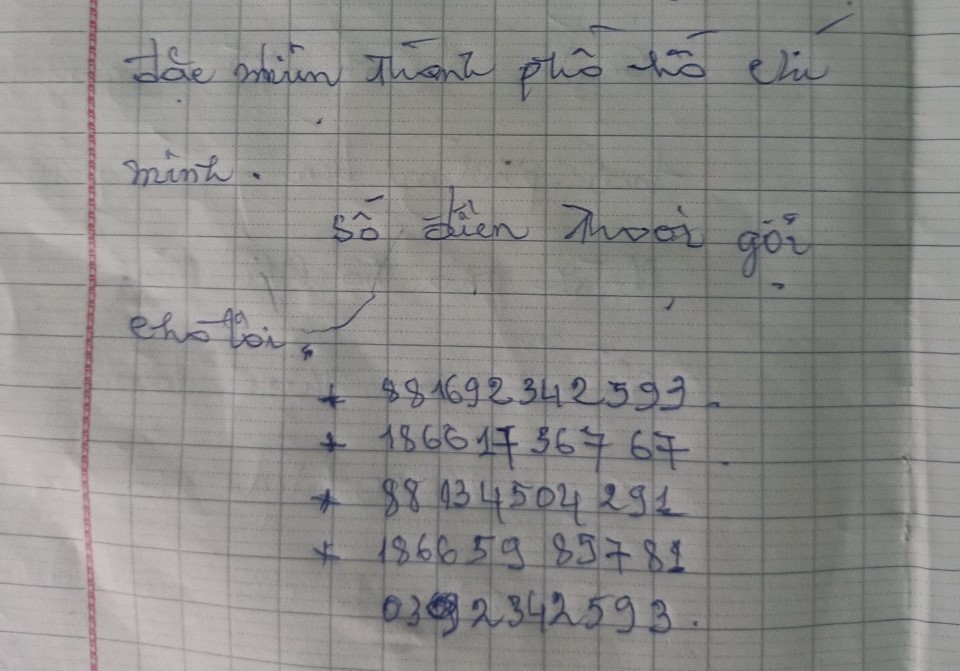 đăc miền Thành phố hồ chí
minh.
số điện Thoại gọi
cho tôi,
+ 881692342593.
+ 18661736767
+ 88134504291
+ 18665985781
0392342593.